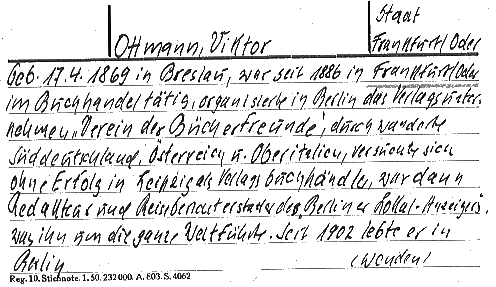 Staat
Ottmann, Viktor
Frankfurt/Oder
Geb. 17.4.1869 in Breslau, war seit 1886 in Frankfurt/Oder
im Buchhandel tätig, organisierte in Berlin das Verlagsunter-
nehmen "Verein der Bücherfreunde", durchwanderte
Süddeutschland, Österreich u. Oberitalien, versuchte sich
ohne Erfolg in Leipzig als Verlagsbuchhändler, war dann
Redakteur und Reiseberichterstatter des "Berliner Lokal-Anzeigers",
was ihn um die ganze Welt führte. Seit 1902 lebte er in
Berlin (wenden)
Reg. 10. Stichnote. 1. 50. 232 000. A. 803. S. 4062